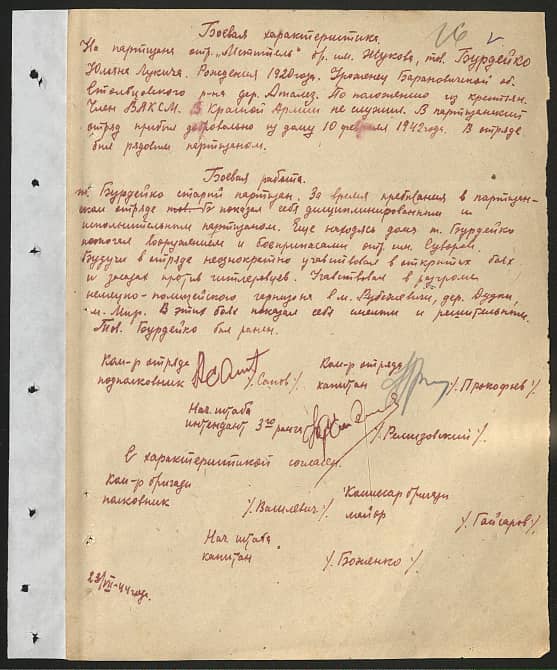 26 v
Боевая характеристика.
На партизана отр. „Мститель" бр. им. Жукова, тов. Бурдейко
Юльяна Лукича. Рождения 1920 года. Уроженец Барановичской об.
Столбцовского р-на дер. По положению из крестьян.
Член ВЛКСМ. В Красной Армии не служил. В партизанский
отряд прибыл добровольно из дому 10 февраля 1942 года. В отряде
был рядовым партизаном.
Боевая работа.
т. Бурдейко старый партизан. За время пребывания в партизан-
ском отряде тов. Б показал себя дисциплинированным и
исполнительным партизаном. Еще находясь дома т. Бурдейко
помогал вооружением и боеприпасами отр. им. Суворова.
Будучи в отряде неоднократно участвовал в открытых боях
и засадах против гитлеровцев. Участвовал в разгроме
немецко-полицейского гарнизона в м. Рубежевичи, дер. Дудки,
м. Мир. В этих боях показал себя смелым и решительным.
Тов. Бурдейко был ранен.
Ком-р отряда Ком-р отряда
подполковник /Сапов/ капитан /Прокофьев/
Нач. штаба
интендант 3го ранга /Ремизовский/
С характеристикой согласен.
Ком-р бригады Комиссар бригады
полковник /Василевич/ майор /Гайсаров/
Нач. штаба
капитан /Боженко/
23/VII-44 года.